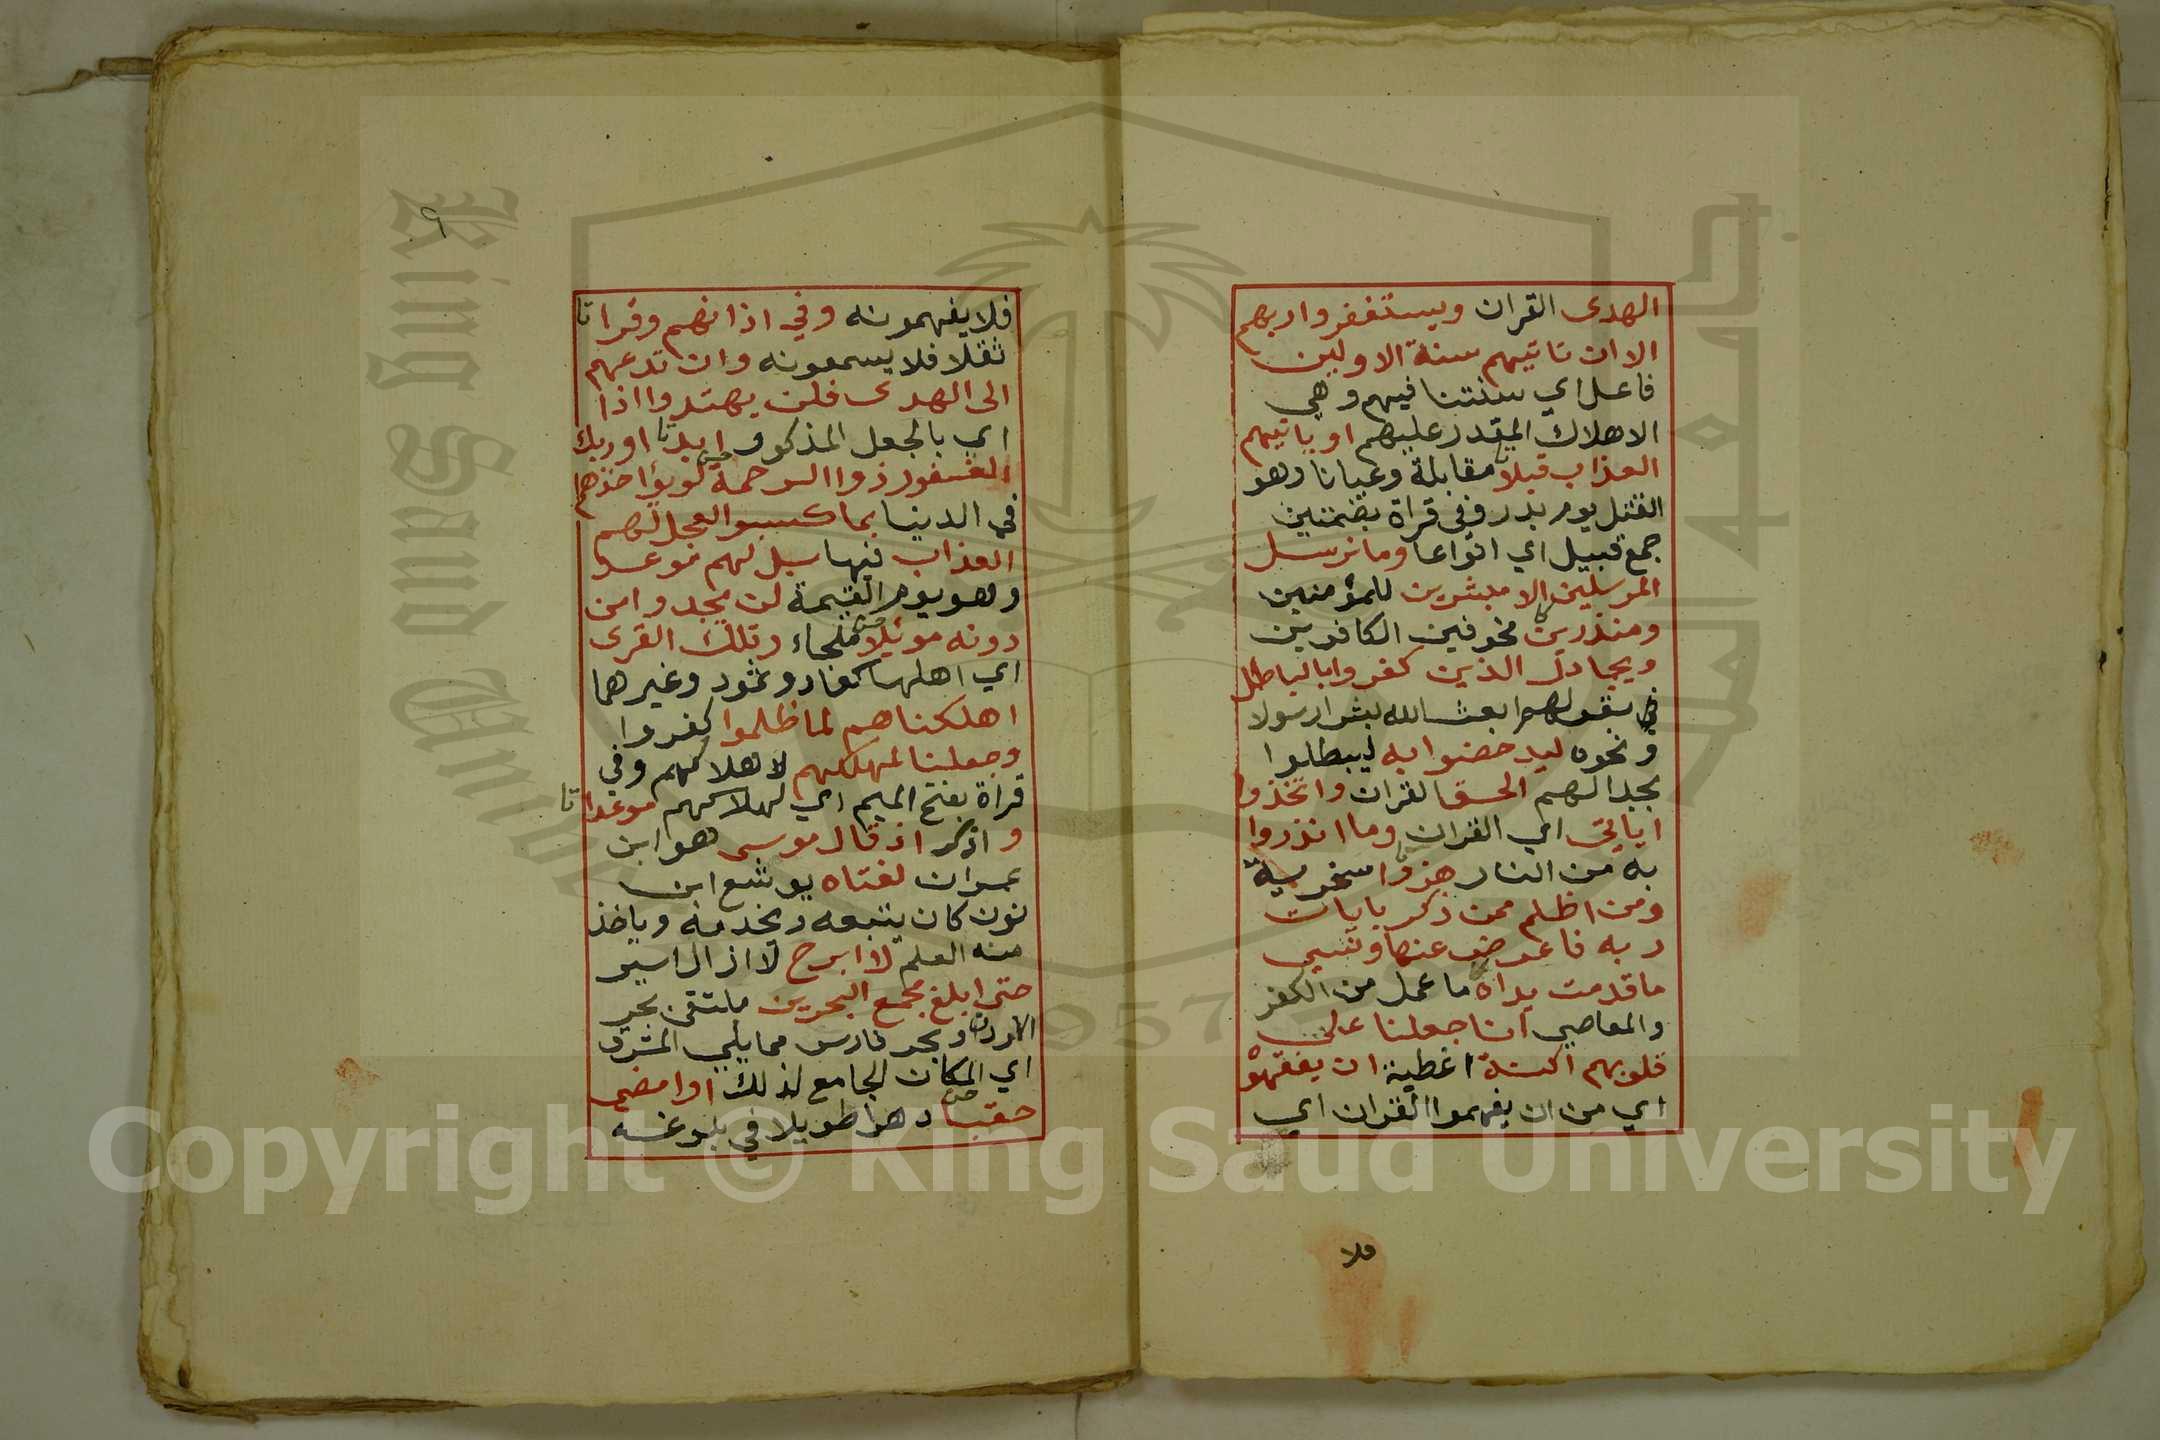 الهدى القران ويستغفروا ربهم
الا ان تاتيهم سنة الاولين
فاعل اي سنتنا فيهم وهي
الاهلاك المقدر عليهم او ياتيهم
العذاب قبلا مقابلة وعيانا وهو
القتل يوم بدر وفي قراة بضمتين
جمع قبيل اي انواعا وما نرسل
المرسلين الا مبشرين للمؤمنين
ومنذرين مخوفين الكافرين
ويجادل الذين كفروا بالباطل
بقولهم ابعث الله بشرا رسولا
ونحوه ليدحضوا به ليبطلوا
بجدالهم الحق القران واتخذوا
اياتي اي القران وما انذروا
به من النار هزوا سخرية
ومن اظلم ممن ذكر بايات
ربه فاعرض عنها ونسي
ما قدمت يداه ما عمل من الكفر
والمعاصي انا جعلنا على
قلوبهم اكنة اغطية ان يفقهوه
اي من ان يفهموا القران اي
فلا
٩
فلا يفهمونه وفي اذانهم وقرا
ثقلا فلا يسمعونه وان تدعهم
الى الهدى فلن يهتدوا اذا
اي بالجعل المذكور ابدا وربك
الغفور ذوا الرحمة لو يؤاخذهم
في الدنيا بما كسبوا لعجل لهم
العذاب فيها بل لهم موعد
وهو يوم القيمة لن يجدوا من
دونه موئلا ملجاء وتلك القرى
اي اهلها كعاد وثمود وغيرهما
اهلكناهم لما ظلموا كفروا
وجعلنا لمهلكهم لاهلاكهم وفي
قراة بفتح الميم اي لهلاكهم موعدا
و اذكر اذ قال موسى هو ابن
عمران لفتاه يوشع ابن
نون كان يتبعه ويخدمه وياخذ
منه العلم لا ابرح لا ازال اسير
حتى ابلغ مجمع البحرين ملتقى بحر
الاردن وبحر فارس مما يلي المشرق
اي المكان الجامع لذلك او امضي
حقبا دهرا طويلا في بلوغه
King Saud University
جامعة الملك سعود
1957
Copyright © King Saud University